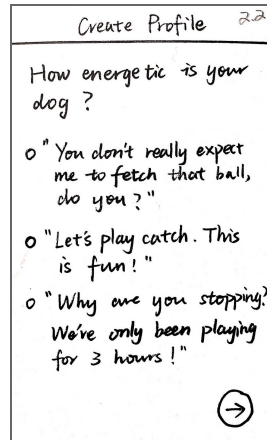 Create Profile 2.2
How energetic is your
dog?
"You don't really expect
me to fetch that ball,
do you?"
"Let's play catch. This
is fun!"
"Why are you stopping?
We've only been playing
for 3 hours!"